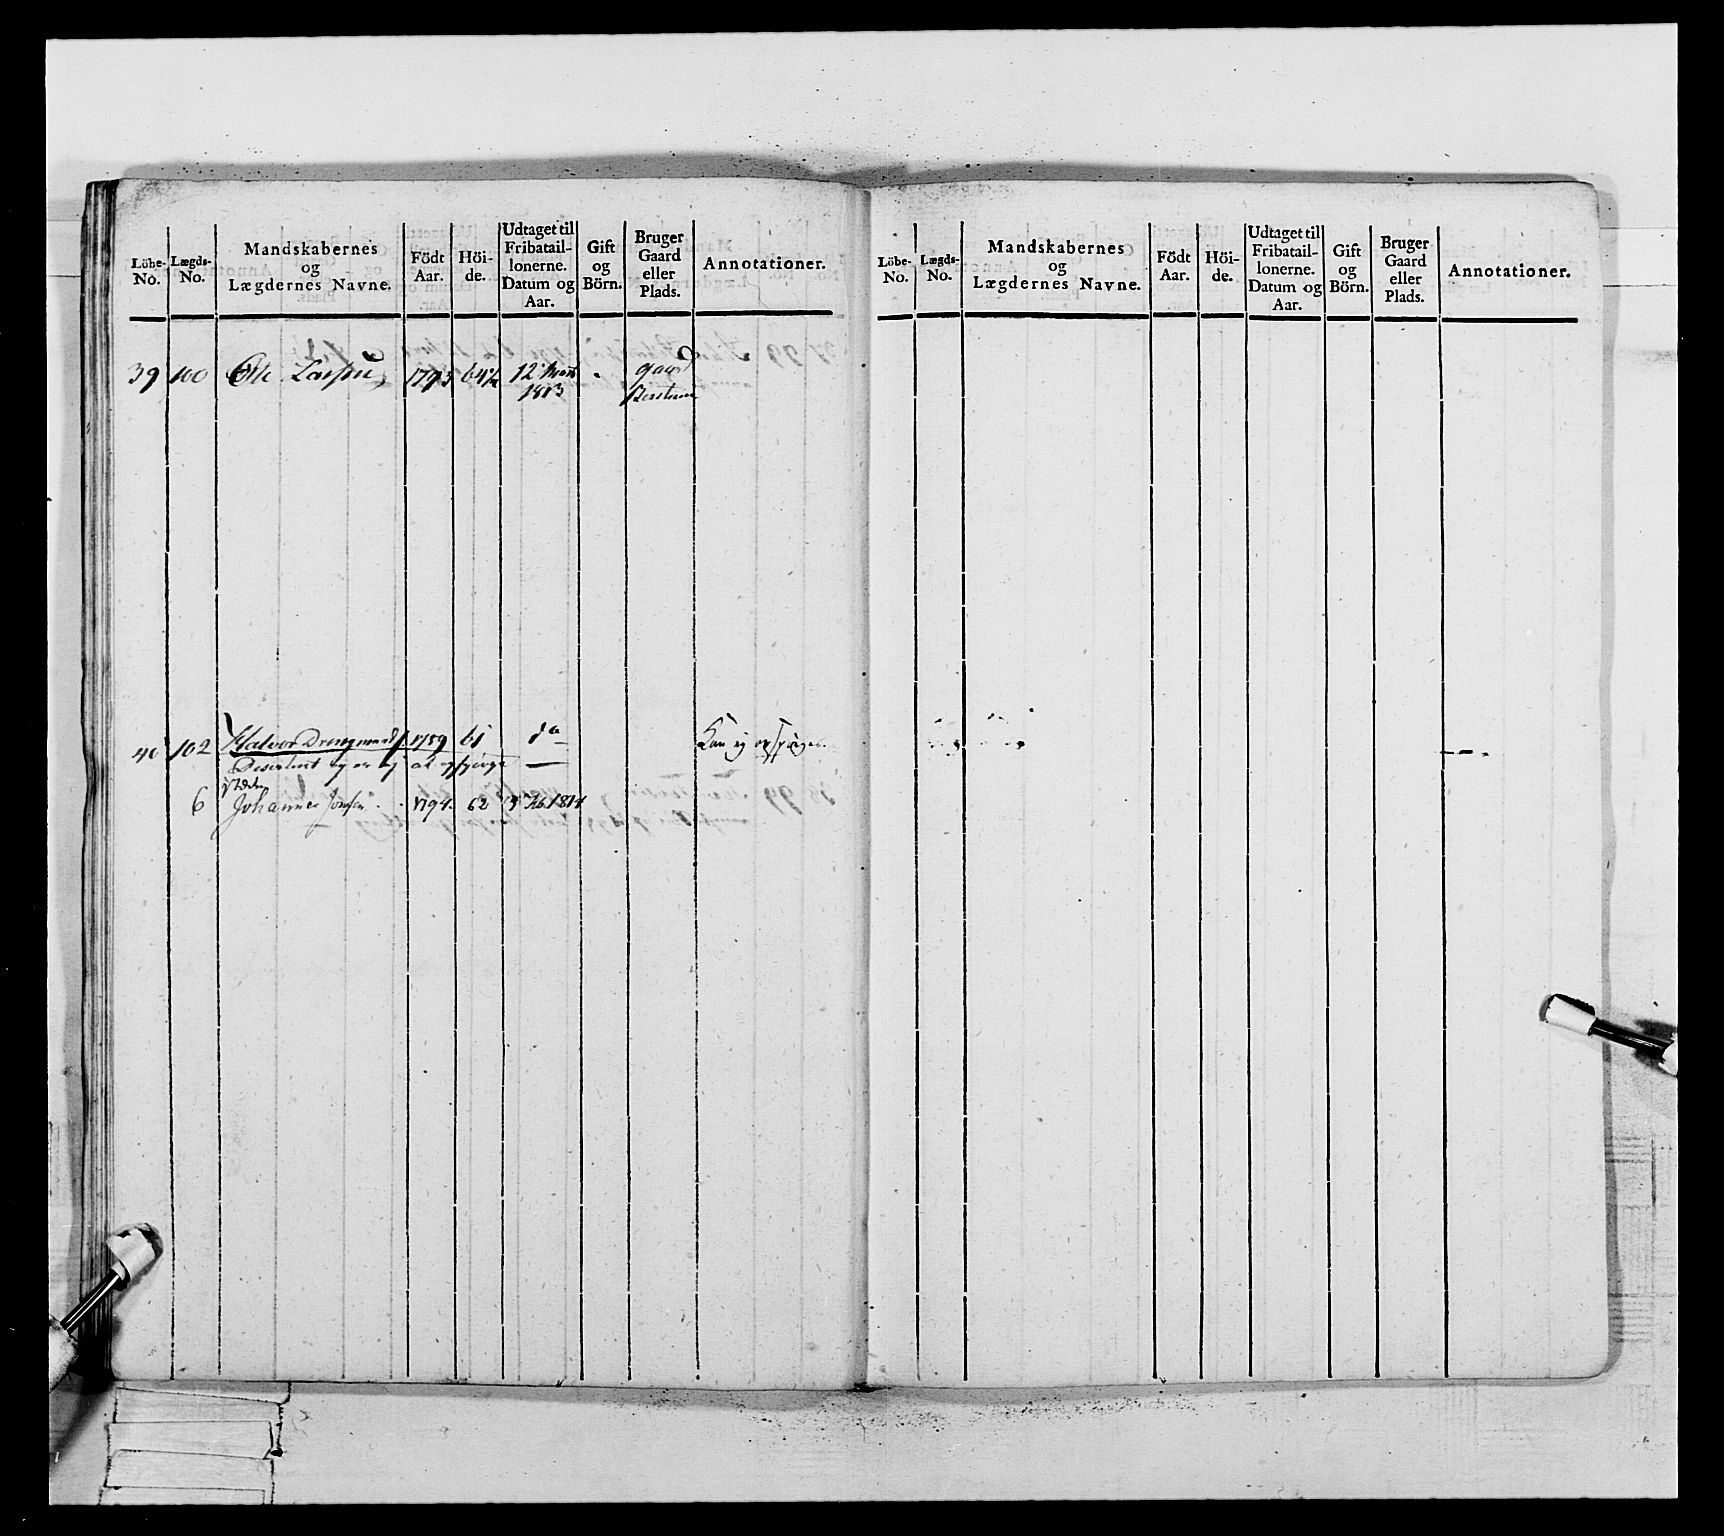 Löbe-No. Lægds-No. Mandskabernes og Lægdernes Navne. Födt Aar. Höi-de. Udtaget til Fribatail-lonerne. Datum og Aar. Gift og Börn. Bruger Gaard eller Plads. Annotationer.
39 100 Ole 1793 64½ 12 1813 gaard
40 102 Halvor 1789 61 do Kan ej
Deserteret og er ej at
6 Johannes 1794. 62 1814
Löbe-No. Lægds-No. Mandskabernes og Lægdernes Navne. Födt Aar. Höi-de. Udtaget til Fribatail-lonerne. Datum og Aar. Gift og Börn. Bruger Gaard eller Plads. Annotationer.